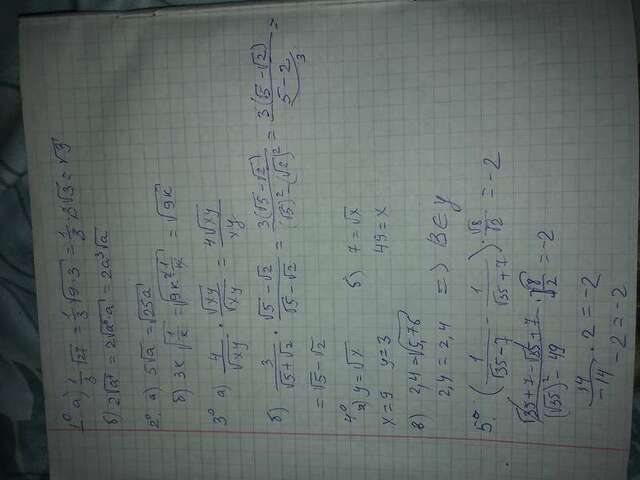 1° a) 1/3 √27 = 1/3 √9·3 = 1/3 · 3√3 = √3
б) 2√a⁷ = 2√a⁶·a = 2a³√a
2° a) 5√a = √25a
б) 3к √1/к = √9к² 1/к = √9к
3° a) 4/√xy · √xy/√xy = 4√xy/xy
б) 3/(√5+√2) · (√5-√2)/(√5-√2) = 3(√5-√2)/((√5)²-(√2)²) = 3(√5-√2)/(5-2) =
3
= √5-√2
4°
a) y=√x б) 7=√x
x=9 y=3 49=x
в) 2,4=√5,76
2,4 = 2,4 => B∈y
5° (1/(√35-7) - 1/(√35+7)) · √8/√2 = -2
(√35+7-√35+7)/((√35)²-49) · √8/2 = -2
14/-14 · 2 = -2
-2 = -2